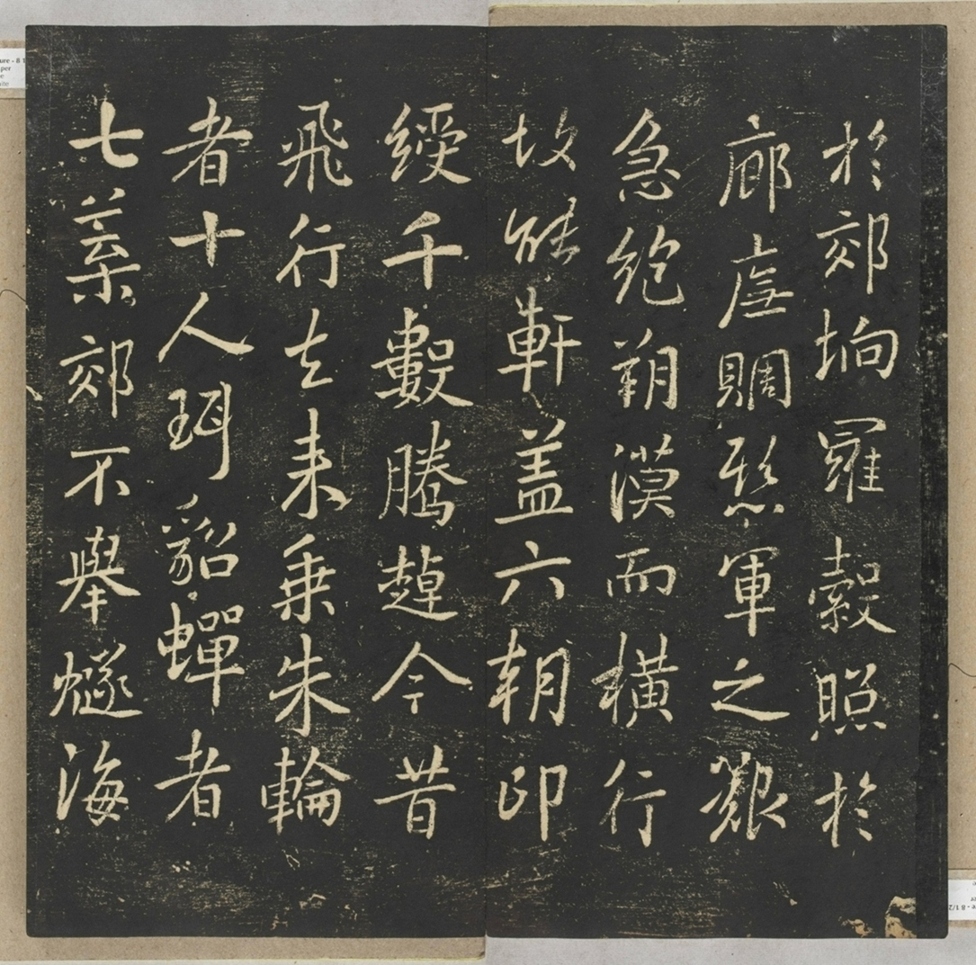 於郊坰羅縠照於
廊廡賙懸軍之艱
急絶朔漠而橫行
故能軒蓋六朝印
綬千數騰趠今昔
飛行去來乘朱輪
者十人珥貂蟬者
七葉郊不舉燧海